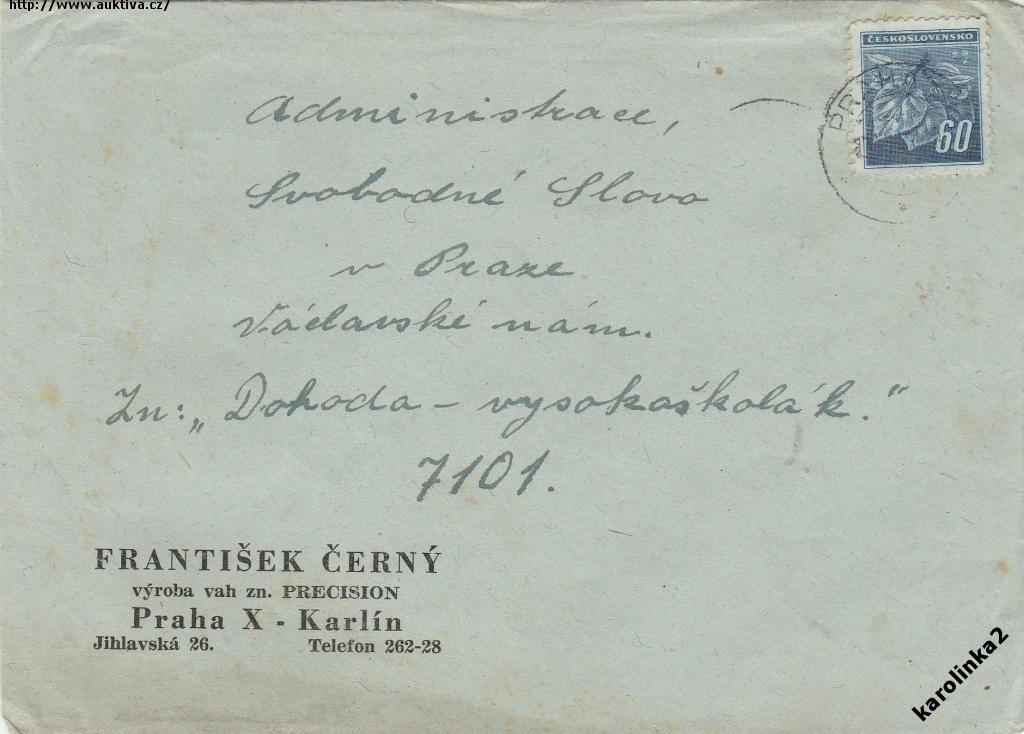 http://www.auktiva.cz/
ČESKOSLOVENSKO
60
PRAHA
Administrace,
Svobodné Slovo
v Praze
Václavské nám.
Zn: „Dohoda – vysokoškolák."
7101.
FRANTIŠEK ČERNÝ
výroba vah zn. PRECISION
Praha X - Karlín
Jihlavská 26. Telefon 262-28
karolinka2